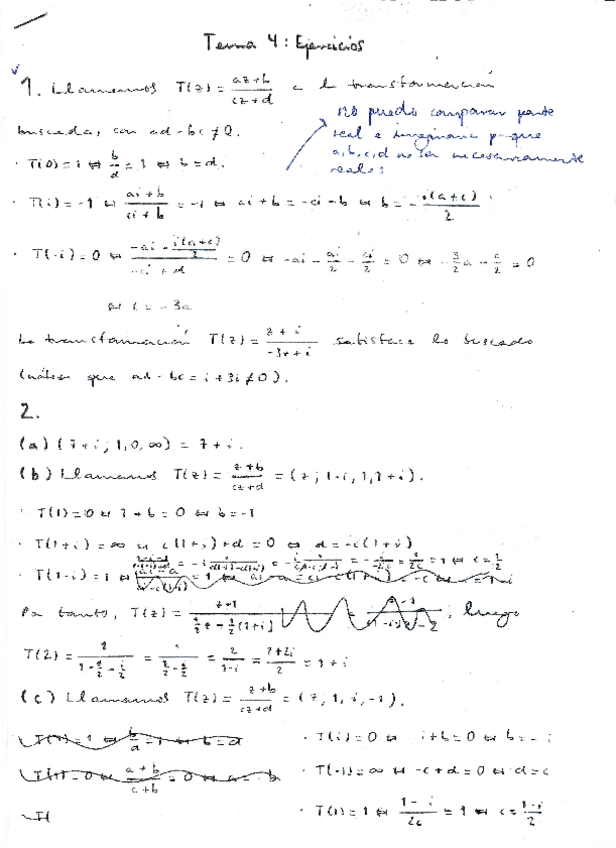 Tema 4: Ejercicios
1. Llamemos T(z) = (az+b)/(cz+d) a la transformación
no puedo comparar parte
real e imaginaria porque
a,b,c,d no son necesariamente
reales
buscada, con ad-bc≠0.
· T(0)=1 ⇔ b/d = 1 ⇔ b=d.
· T(i)=-1 ⇔ (ai+b)/(ci+b) = -1 ⇔ ai+b = -ci-b ⇔ b = -i(a+c)/2
· T(-i)=0 ⇔ (-ai - i(a+c)/2)/(-ci+d) = 0 ⇔ -ai - ai/2 - ci/2 = 0 ⇔ -3/2 a - c/2 = 0
⇔ c = -3a
La transformación T(z) = (z+i)/(-3z+i) satisface lo buscado
(nótese que ad-bc = i+3i≠0).
2.
(a) (7+i, 1, 0, ∞) = 7+i.
(b) Llamamos T(z) = (z+b)/(cz+d) = (z, 1-i, 1, 1+i).
· T(1)=0 ⇔ 1+b=0 ⇔ b=-1
· T(1+i)=∞ ⇔ c(1+i)+d=0 ⇔ d=-c(1+i)
· T(1-i)=1 ⇔ = 1 ⇔ c=1/2
Por tanto, T(z) = (z-1)/(1/2 z - 1/2(1+i)) ; luego
T(2) = 1/(1 - 1/2 - i/2) = 1/(1/2 - i/2) = 2/(1-i) = (2+2i)/2 = 1+i
(c) Llamamos T(z) = (z+b)/(cz+d) = (z, 1, i, -1).
· T(i)=0 ⇔ i+b=0 ⇔ b=-i
· T(-1)=∞ ⇔ -c+d=0 ⇔ d=c
· T(1)=1 ⇔ (1-i)/2c = 1 ⇔ c = (1-i)/2